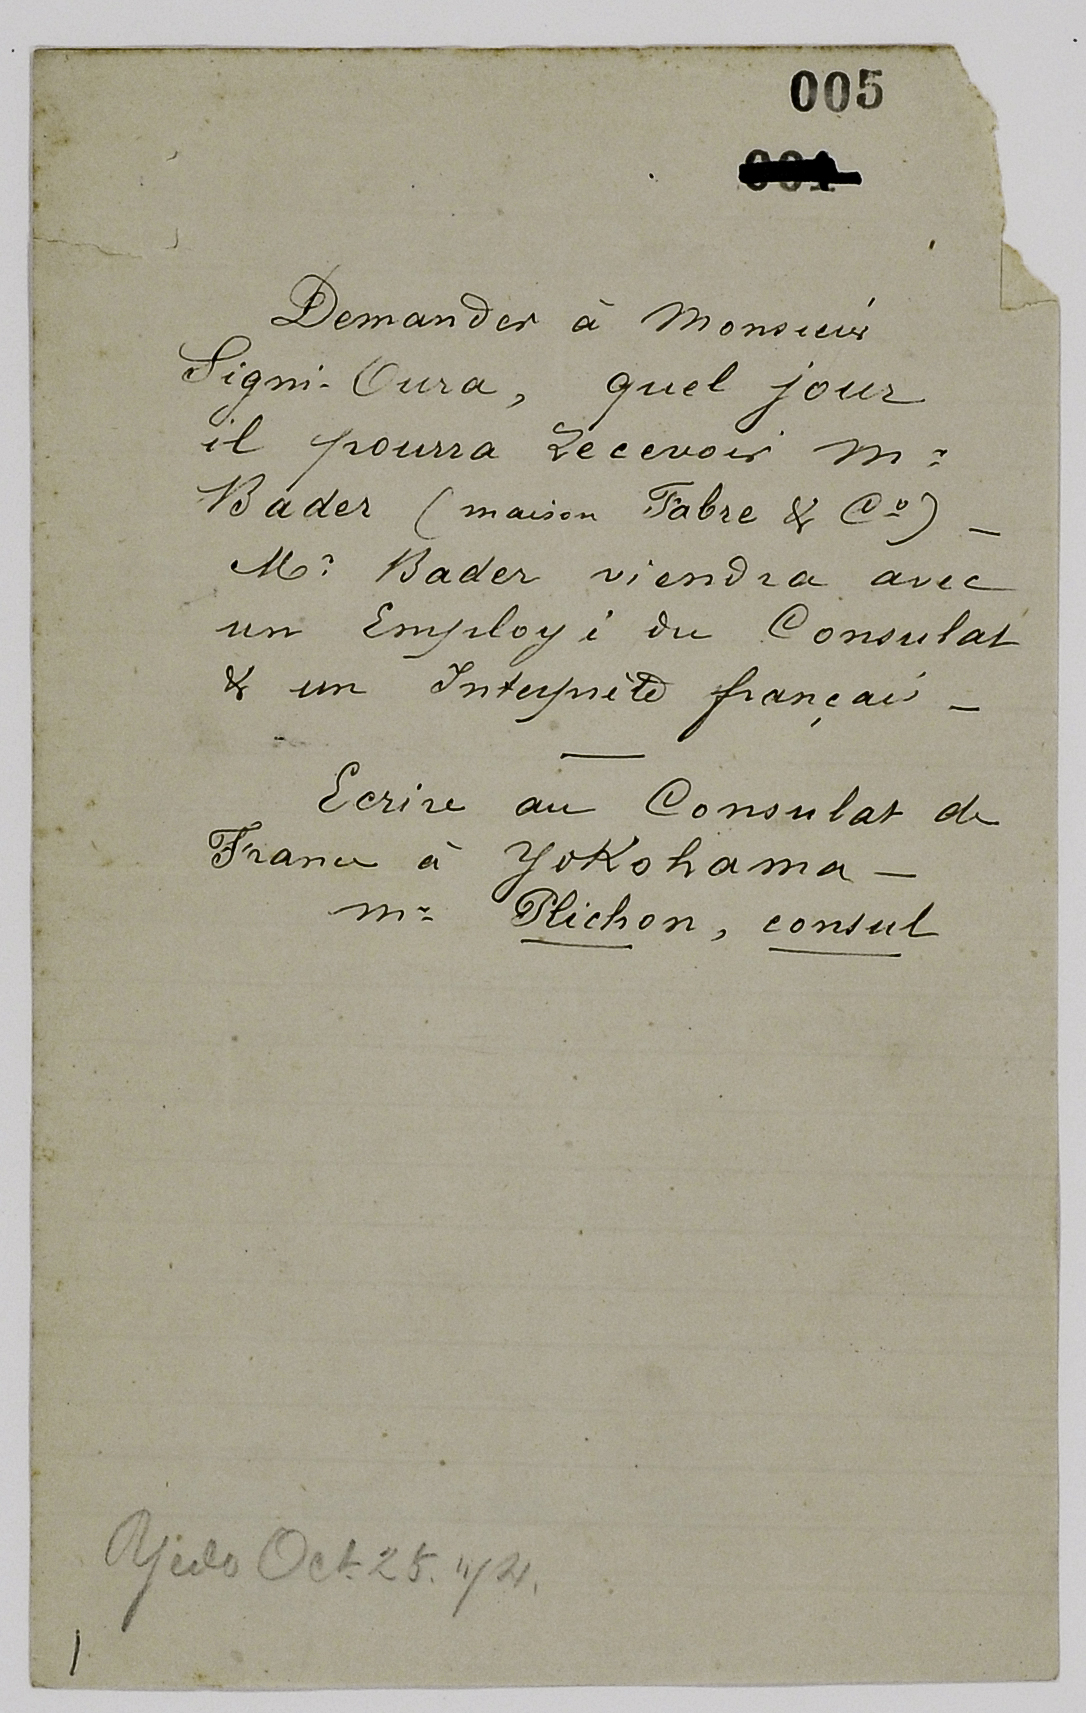 005
001
Demander à Monsieur
Signi-Oura, quel jour
il pourra recevoir Mr
Bader (maison Fabre & Co) _
Mr Bader viendra avec
un Employé du Consulat
& un Interprète français _
Ecrire au Consulat de
France à Yokohama _
Mr Plichon, consul
Yedo Oct. 25.
1